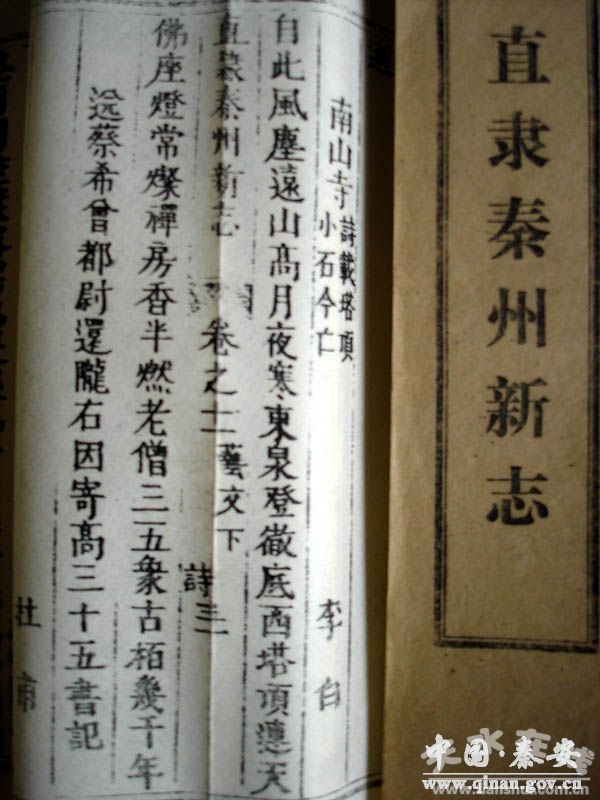 直隶秦州新志
南山寺 詩載塔頂小石今亡 李白
自此風塵遠山高月夜寒東泉登徹底西塔頂連天
直隷秦州新志 卷之十二 藝文下 詩三
佛座燈常燦禪房香半燃老僧三五衆古栢幾千年
送蔡希曾都尉還隴右因寄高三十五書記 杜甫
中国·秦安
www.qinan.gov.cn